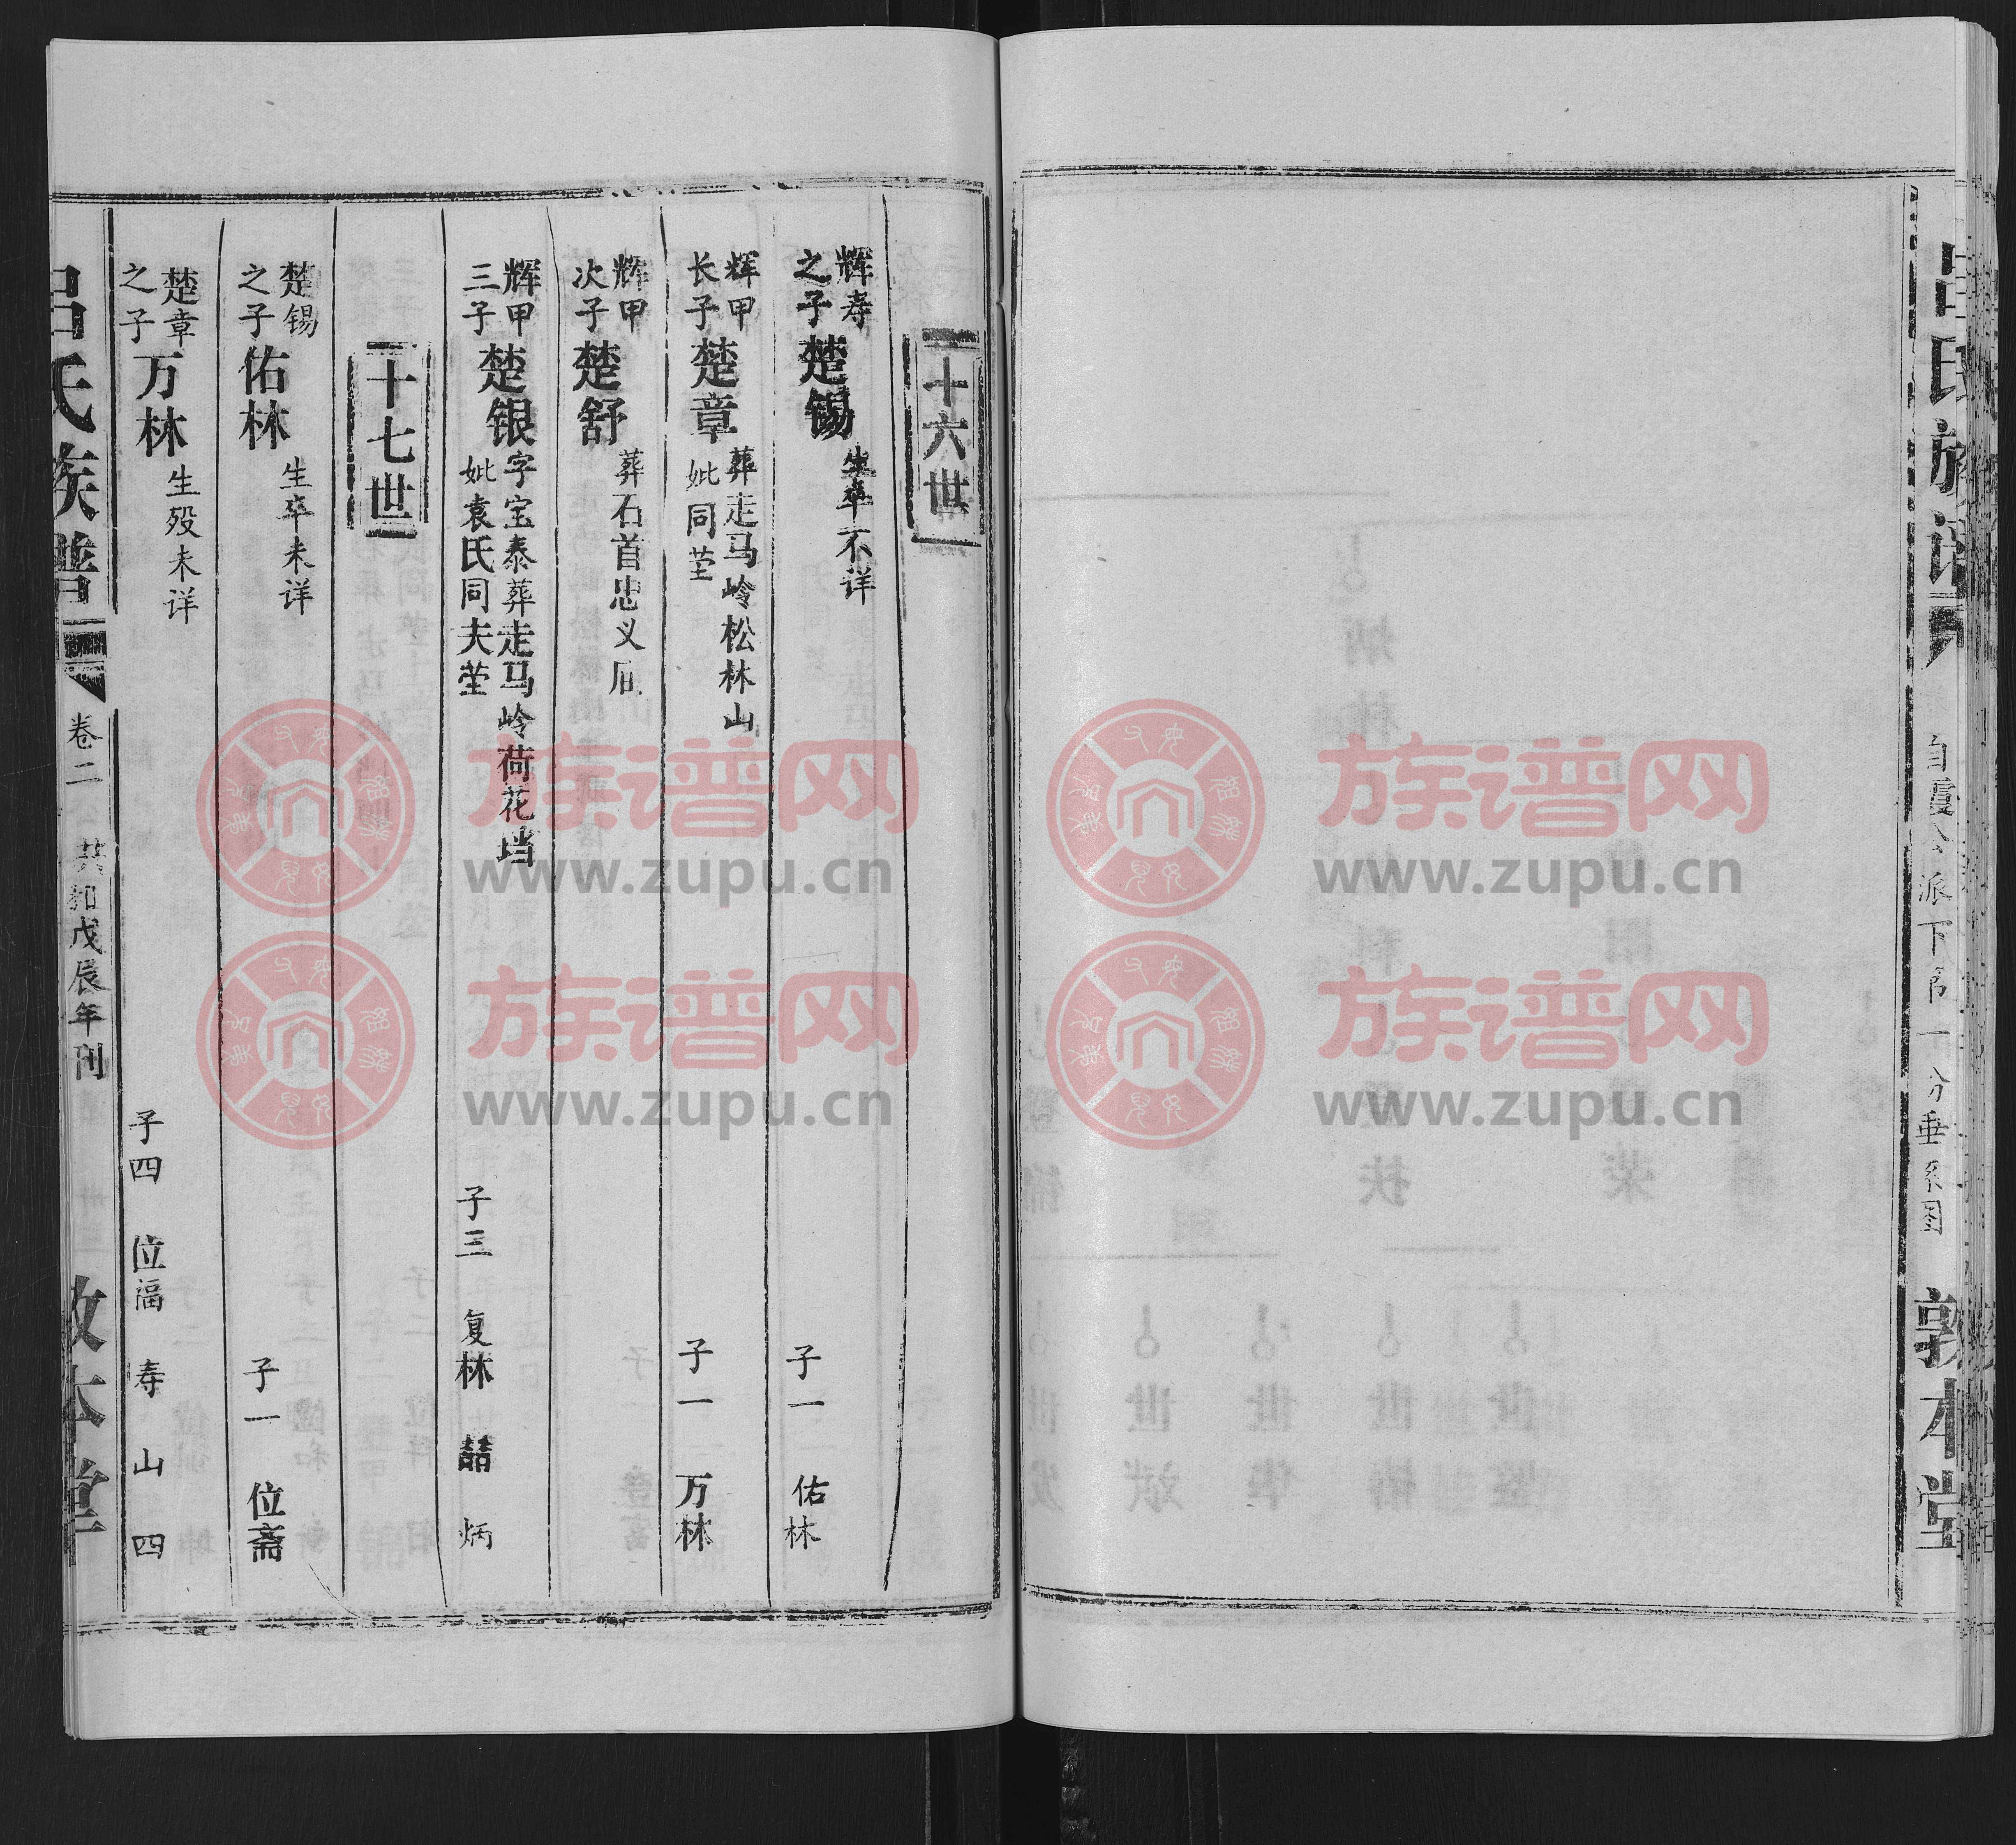 吕氏族谱
自霞公派下第一分垂系图
敦本堂
十六世
辉寿之子 楚锡 生卒不详 子一 佑林
辉甲长子 楚章 葬走马岭松林山 妣同茔 子一 万林
辉甲次子 楚舒 葬石首忠义垸
辉甲三子 楚银 字宝泰葬走马岭荷花垱 妣袁氏同夫茔 子三 复林 喆 炳
十七世
楚锡之子 佑林 生卒未详 子一 位斋
楚章之子 万林 生殁未详 子四 位福 寿 山 四
吕氏族谱
卷二
共和戊辰年刊
敦本堂
族谱网
www.zupu.cn
族谱网
www.zupu.cn
族谱网
www.zupu.cn
族谱网
www.zupu.cn